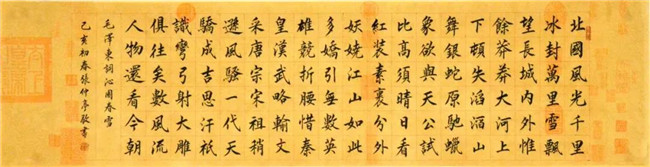 北國風光千里
冰封萬里雪飄
望長城內外惟
餘莽莽大河上
下頓失滔滔山
舞銀蛇原馳蠟
象欲與天公試
比高須晴日看
紅裝素裹分外
妖嬈江山如此
多嬌引無數英
雄競折腰惜秦
皇漢武略輸文
采唐宗宋祖稍
遜風騷一代天
驕成吉思汗祇
識彎弓射大雕
俱往矣數風流
人物還看今朝
毛澤東詞沁園春雪
己亥初春張仲亭敬書